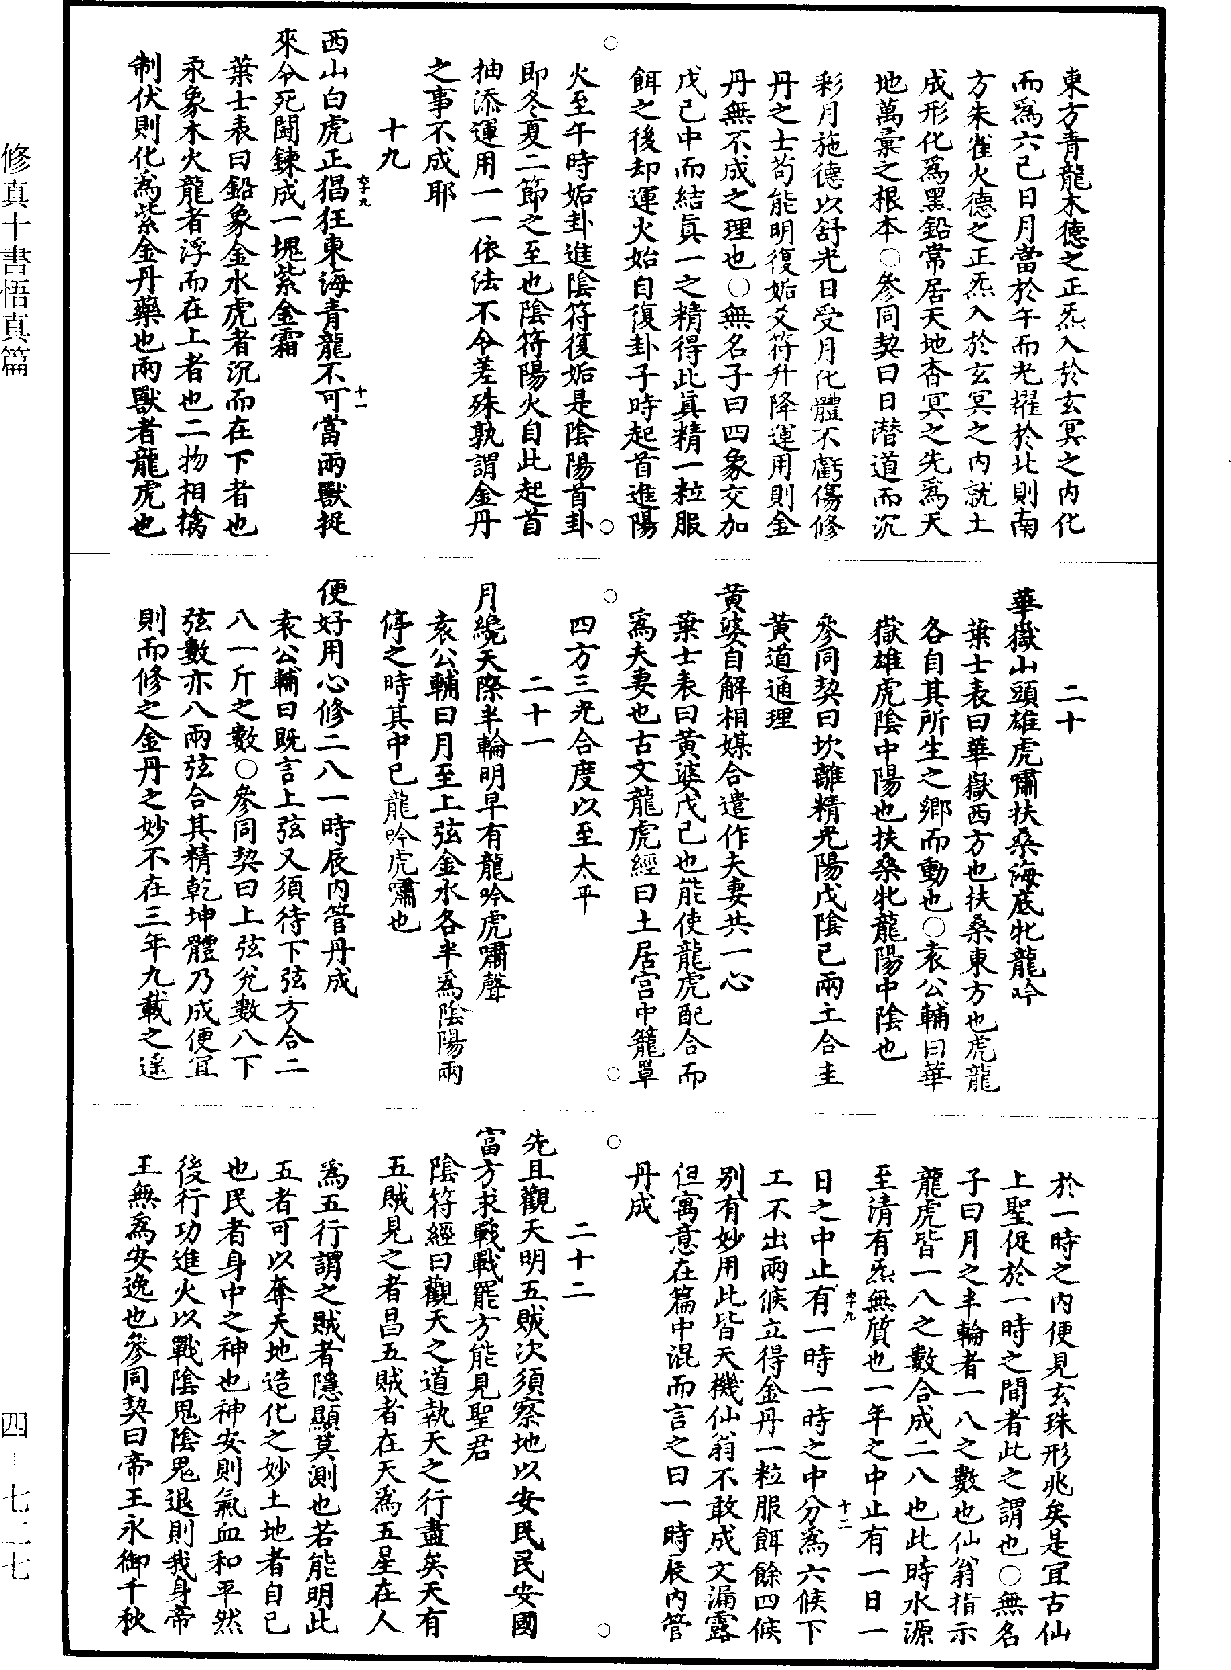 東方青龍木德之正炁入於玄冥之內化
而爲六己日月當於午而光耀於北則南
方朱雀火德之正炁入於玄冥之內就土
成形化爲黑鉛常居天地杳冥之先爲天
地萬彙之根本○參同契曰日潜道而沉
彩月施德以舒光日受月化體不虧傷修
丹之士苟能明復姤爻符升降運用則金
丹無不成之理也○無名子曰四象交加
戊己中而結眞一之精得此眞精一粒服
餌之後却運火始自復卦子時起首進陽
火至午時姤卦進陰符復姤是陰陽首卦
即冬夏二節之至也陰符陽火自此起首
抽添運用一一依法不令差殊孰謂金丹
之事不成耶
十九
西山白虎正猖狂東海青龍不可當兩獸捉
來令死鬪鍊成一塊紫金霜
葉士表曰鉛象金水虎者沉而在下者也
汞象木火龍者浮而在上者也二物相擒
制伏則化爲紫金丹藥也兩獸者龍虎也
二十
華嶽山頭雄虎嘯扶桑海底牝龍吟
黃婆自解相媒合遣作夫妻共一心
葉士表曰華嶽西方也扶桑東方也虎龍
各自其所生之鄉而動也○袁公輔曰華
嶽雄虎陰中陽也扶桑牝龍陽中陰也
參同契曰坎離精光陽戊陰己兩土合圭
黃道通理
葉士表曰黃婆戊己也能使龍虎配合而
爲夫妻也古文龍虎經曰土居宫中籠罩
四方三光合度以至太平
二十一
月纔天際半輪明早有龍吟虎嘯聲
袁公輔曰月至上弦金水各半爲陰陽兩
停之時其中已龍吟虎嘯也
便好用心修二八一時辰內管丹成
袁公輔曰既言上弦又須待下弦方合二
八一斤之數○參同契曰上弦兌數八下
弦數亦八兩弦合其精乾坤體乃成便宜
則而修之金丹之妙不在三年九載之遙
於一時之內便見玄珠形兆矣是宜古仙
上聖促於一時之間者此之謂也○無名
子曰月之半輪者一八之數也仙翁指示
龍虎皆一八之數合成二八也此時水源
至清有炁無質也一年之中止有一日一
日之中止有一時一時之中分爲六候下
工不出兩候立得金丹一粒服餌餘四候
別有妙用此皆天機仙翁不敢成文漏露
但寓意在篇中混而言之曰一時辰內管
丹成
二十二
先且觀天明五賊次須察地以安民民安國
富方求戰戰罷方能見聖君
陰符經曰觀天之道執天之行盡矣天有
五賊見之者昌五賊者在天爲五星在人
爲五行謂之賊者隱顯莫測也若能明此
五者可以奪天地造化之妙土地者自己
也民者身中之神也神安則氣血和平然
後行功進火以戰陰鬼陰鬼退則我身帝
王無爲安逸也參同契曰帝王永御千秋
修真十書悟真篇
四—七二七